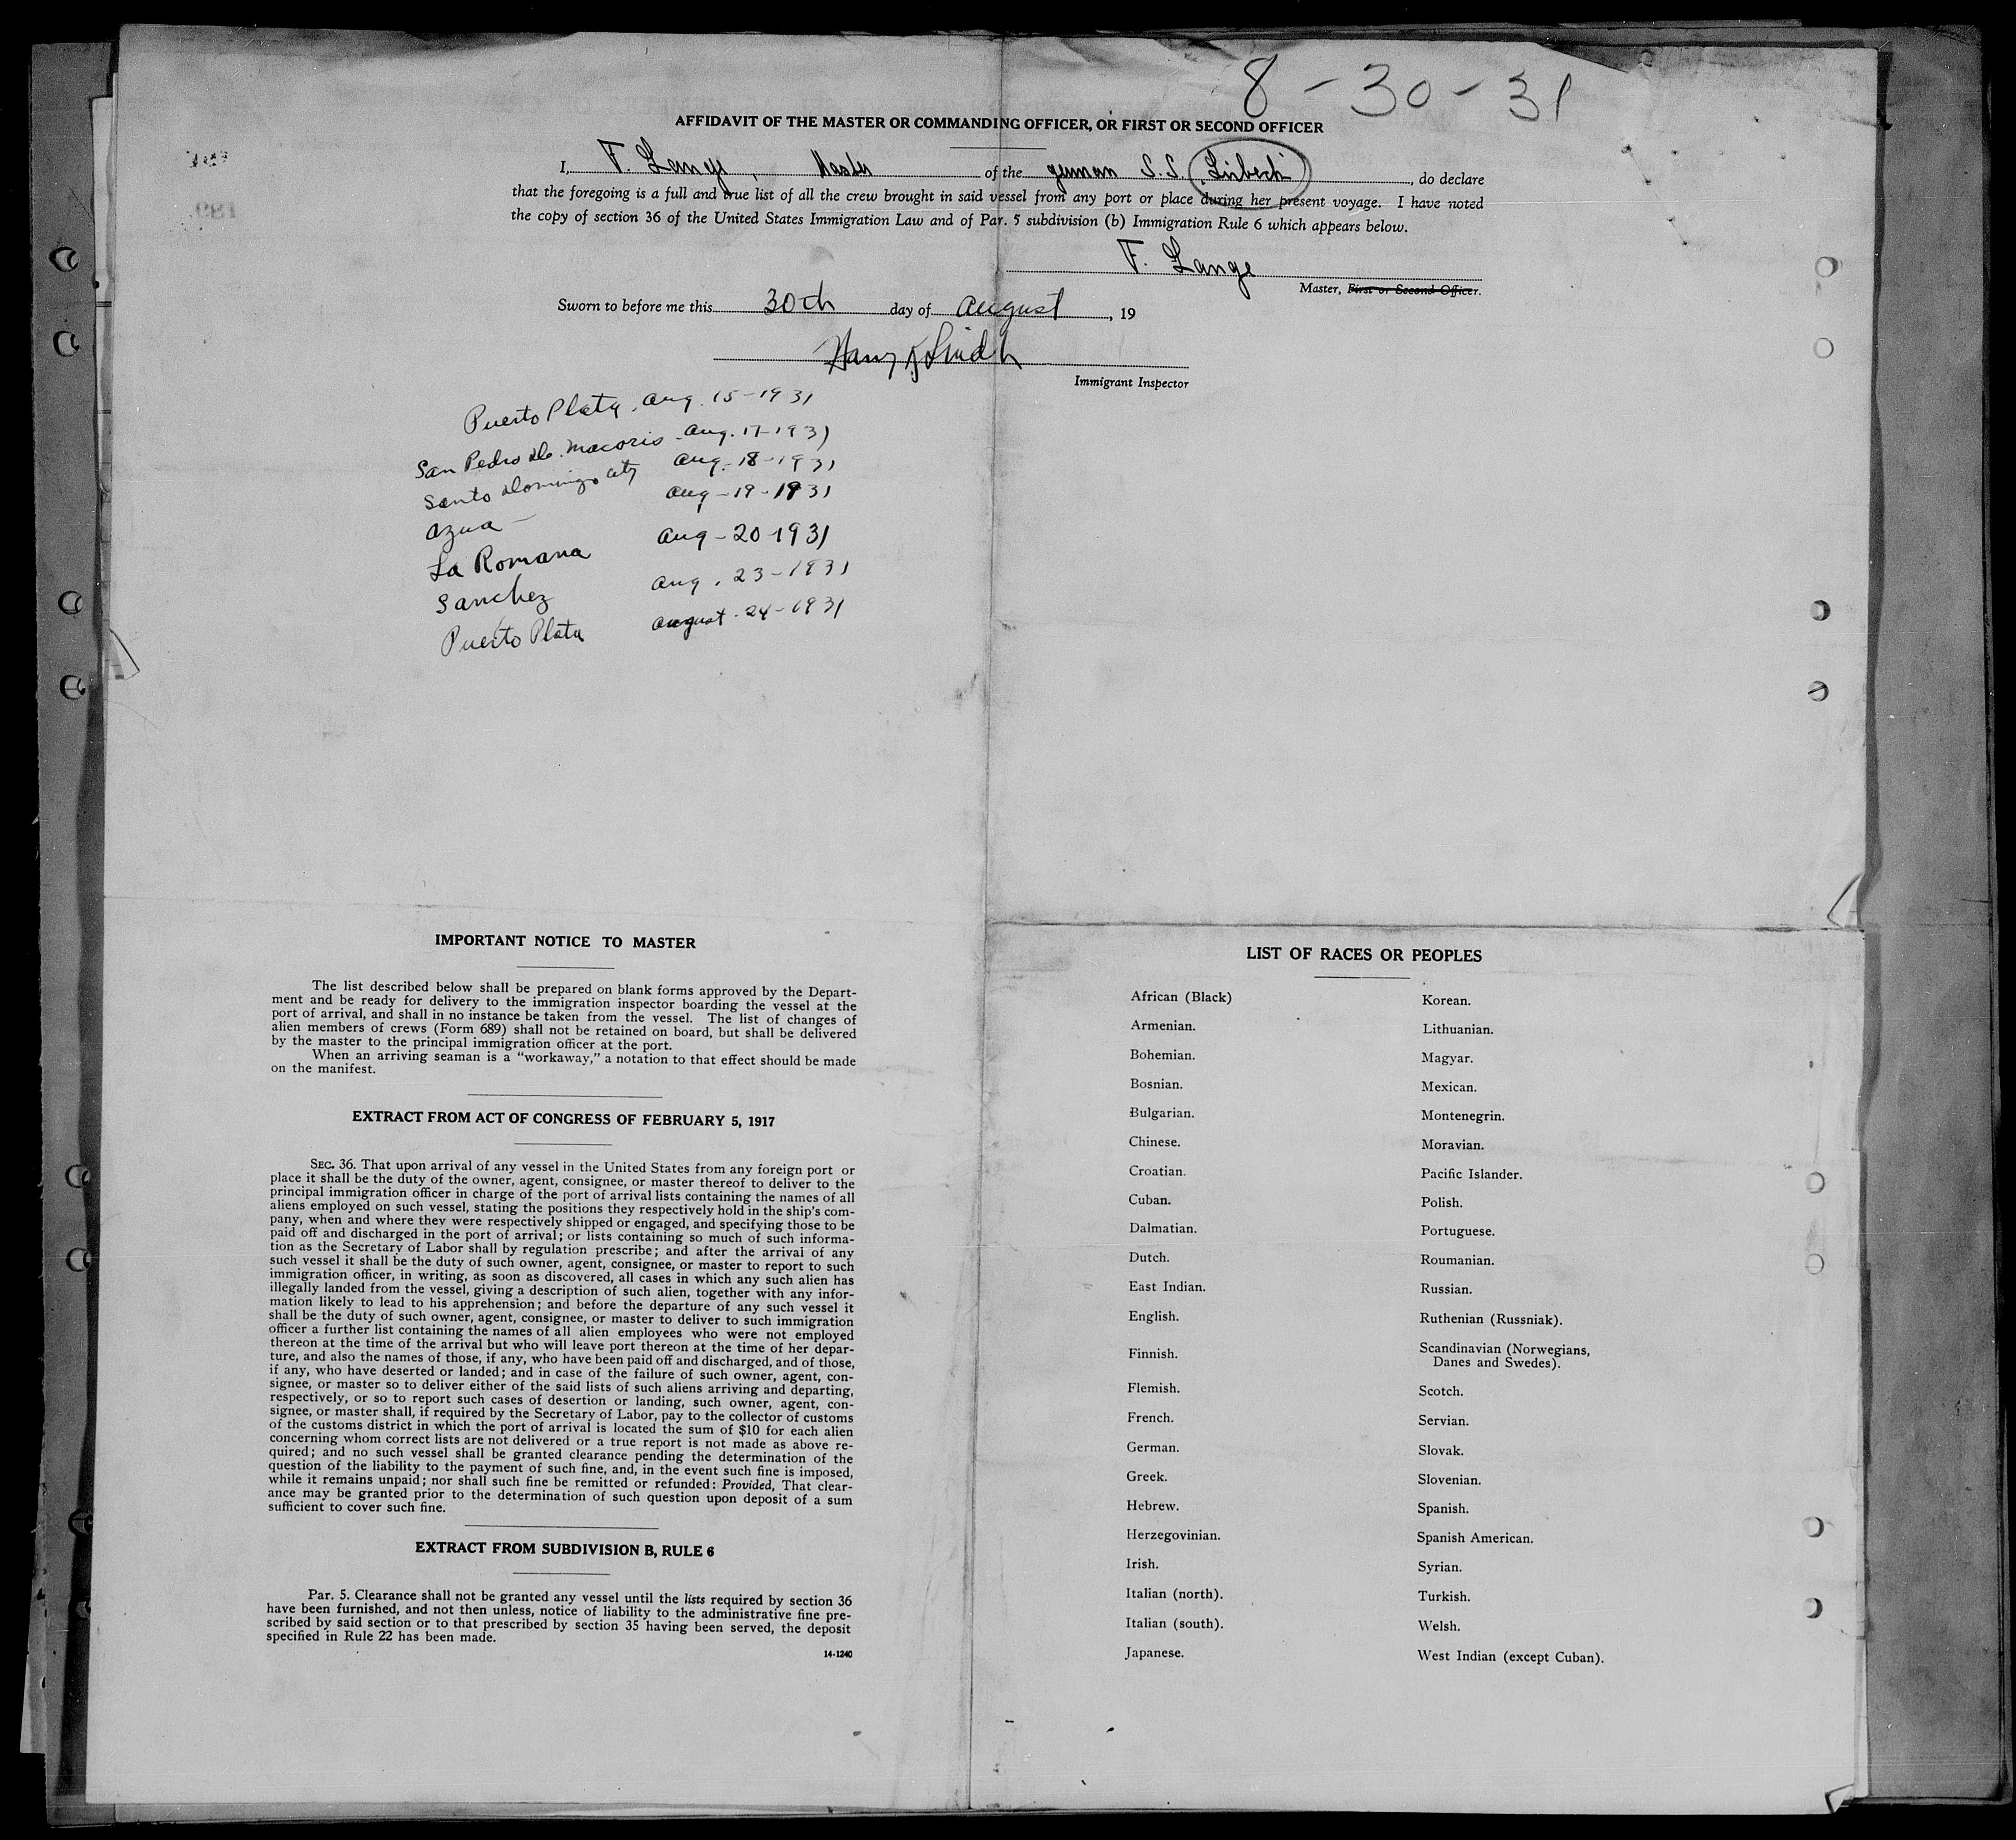 8 - 30 - 31
AFFIDAVIT OF THE MASTER OR COMMANDING OFFICER, OR FIRST OR SECOND OFFICER
I, F. Lange, Master of the german S.S. "Lübeck", do declare
that the foregoing is a full and true list of all the crew brought in said vessel from any port or place during her present voyage. I have noted
the copy of section 36 of the United States Immigration Law and of Par. 5 subdivision (b) Immigration Rule 6 which appears below.
F. Lange
Master, First or Second Officer.
Sworn to before me this 30th day of August, 19
Immigrant Inspector
Puerto Plata. Aug. 15-1931
San Pedro de. Macoris - Aug. 17-1931
Santo Domingo City Aug. 18-1931
Azua - Aug-19-1931
La Romana Aug-20-1931
Sanchez Aug. 23-1931
Puerto Plata August-24-1931
IMPORTANT NOTICE TO MASTER
The list described below shall be prepared on blank forms approved by the Depart-
ment and be ready for delivery to the immigration inspector boarding the vessel at the
port of arrival, and shall in no instance be taken from the vessel. The list of changes of
alien members of crews (Form 689) shall not be retained on board, but shall be delivered
by the master to the principal immigration officer at the port.
When an arriving seaman is a "workaway," a notation to that effect should be made
on the manifest.
EXTRACT FROM ACT OF CONGRESS OF FEBRUARY 5, 1917
SEC. 36. That upon arrival of any vessel in the United States from any foreign port or
place it shall be the duty of the owner, agent, consignee, or master thereof to deliver to the
principal immigration officer in charge of the port of arrival lists containing the names of all
aliens employed on such vessel, stating the positions they respectively hold in the ship's com-
pany, when and where they were respectively shipped or engaged, and specifying those to be
paid off and discharged in the port of arrival; or lists containing so much of such informa-
tion as the Secretary of Labor shall by regulation prescribe; and after the arrival of any
such vessel it shall be the duty of such owner, agent, consignee, or master to report to such
immigration officer, in writing, as soon as discovered, all cases in which any such alien has
illegally landed from the vessel, giving a description of such alien, together with any infor-
mation likely to lead to his apprehension; and before the departure of any such vessel it
shall be the duty of such owner, agent, consignee, or master to deliver to such immigration
officer a further list containing the names of all alien employees who were not employed
thereon at the time of the arrival but who will leave port thereon at the time of her depar-
ture, and also the names of those, if any, who have been paid off and discharged, and of those,
if any, who have deserted or landed; and in case of the failure of such owner, agent, con-
signee, or master so to deliver either of the said lists of such aliens arriving and departing,
respectively, or so to report such cases of desertion or landing, such owner, agent, con-
signee, or master shall, if required by the Secretary of Labor, pay to the collector of customs
of the customs district in which the port of arrival is located the sum of $10 for each alien
concerning whom correct lists are not delivered or a true report is not made as above re-
quired; and no such vessel shall be granted clearance pending the determination of the
question of the liability to the payment of such fine, and, in the event such fine is imposed,
while it remains unpaid; nor shall such fine be remitted or refunded: Provided, That clear-
ance may be granted prior to the determination of such question upon deposit of a sum
sufficient to cover such fine.
EXTRACT FROM SUBDIVISION B, RULE 6
Par. 5. Clearance shall not be granted any vessel until the lists required by section 36
have been furnished, and not then unless, notice of liability to the administrative fine pre-
scribed by said section or to that prescribed by section 35 having been served, the deposit
specified in Rule 22 has been made.
14-1240
LIST OF RACES OR PEOPLES
African (Black)
Armenian.
Bohemian.
Bosnian.
Bulgarian.
Chinese.
Croatian.
Cuban.
Dalmatian.
Dutch.
East Indian.
English.
Finnish.
Flemish.
French.
German.
Greek.
Hebrew.
Herzegovinian.
Irish.
Italian (north).
Italian (south).
Japanese.
Korean.
Lithuanian.
Magyar.
Mexican.
Montenegrin.
Moravian.
Pacific Islander.
Polish.
Portuguese.
Roumanian.
Russian.
Ruthenian (Russniak).
Scandinavian (Norwegians,
Danes and Swedes).
Scotch.
Servian.
Slovak.
Slovenian.
Spanish.
Spanish American.
Syrian.
Turkish.
Welsh.
West Indian (except Cuban).